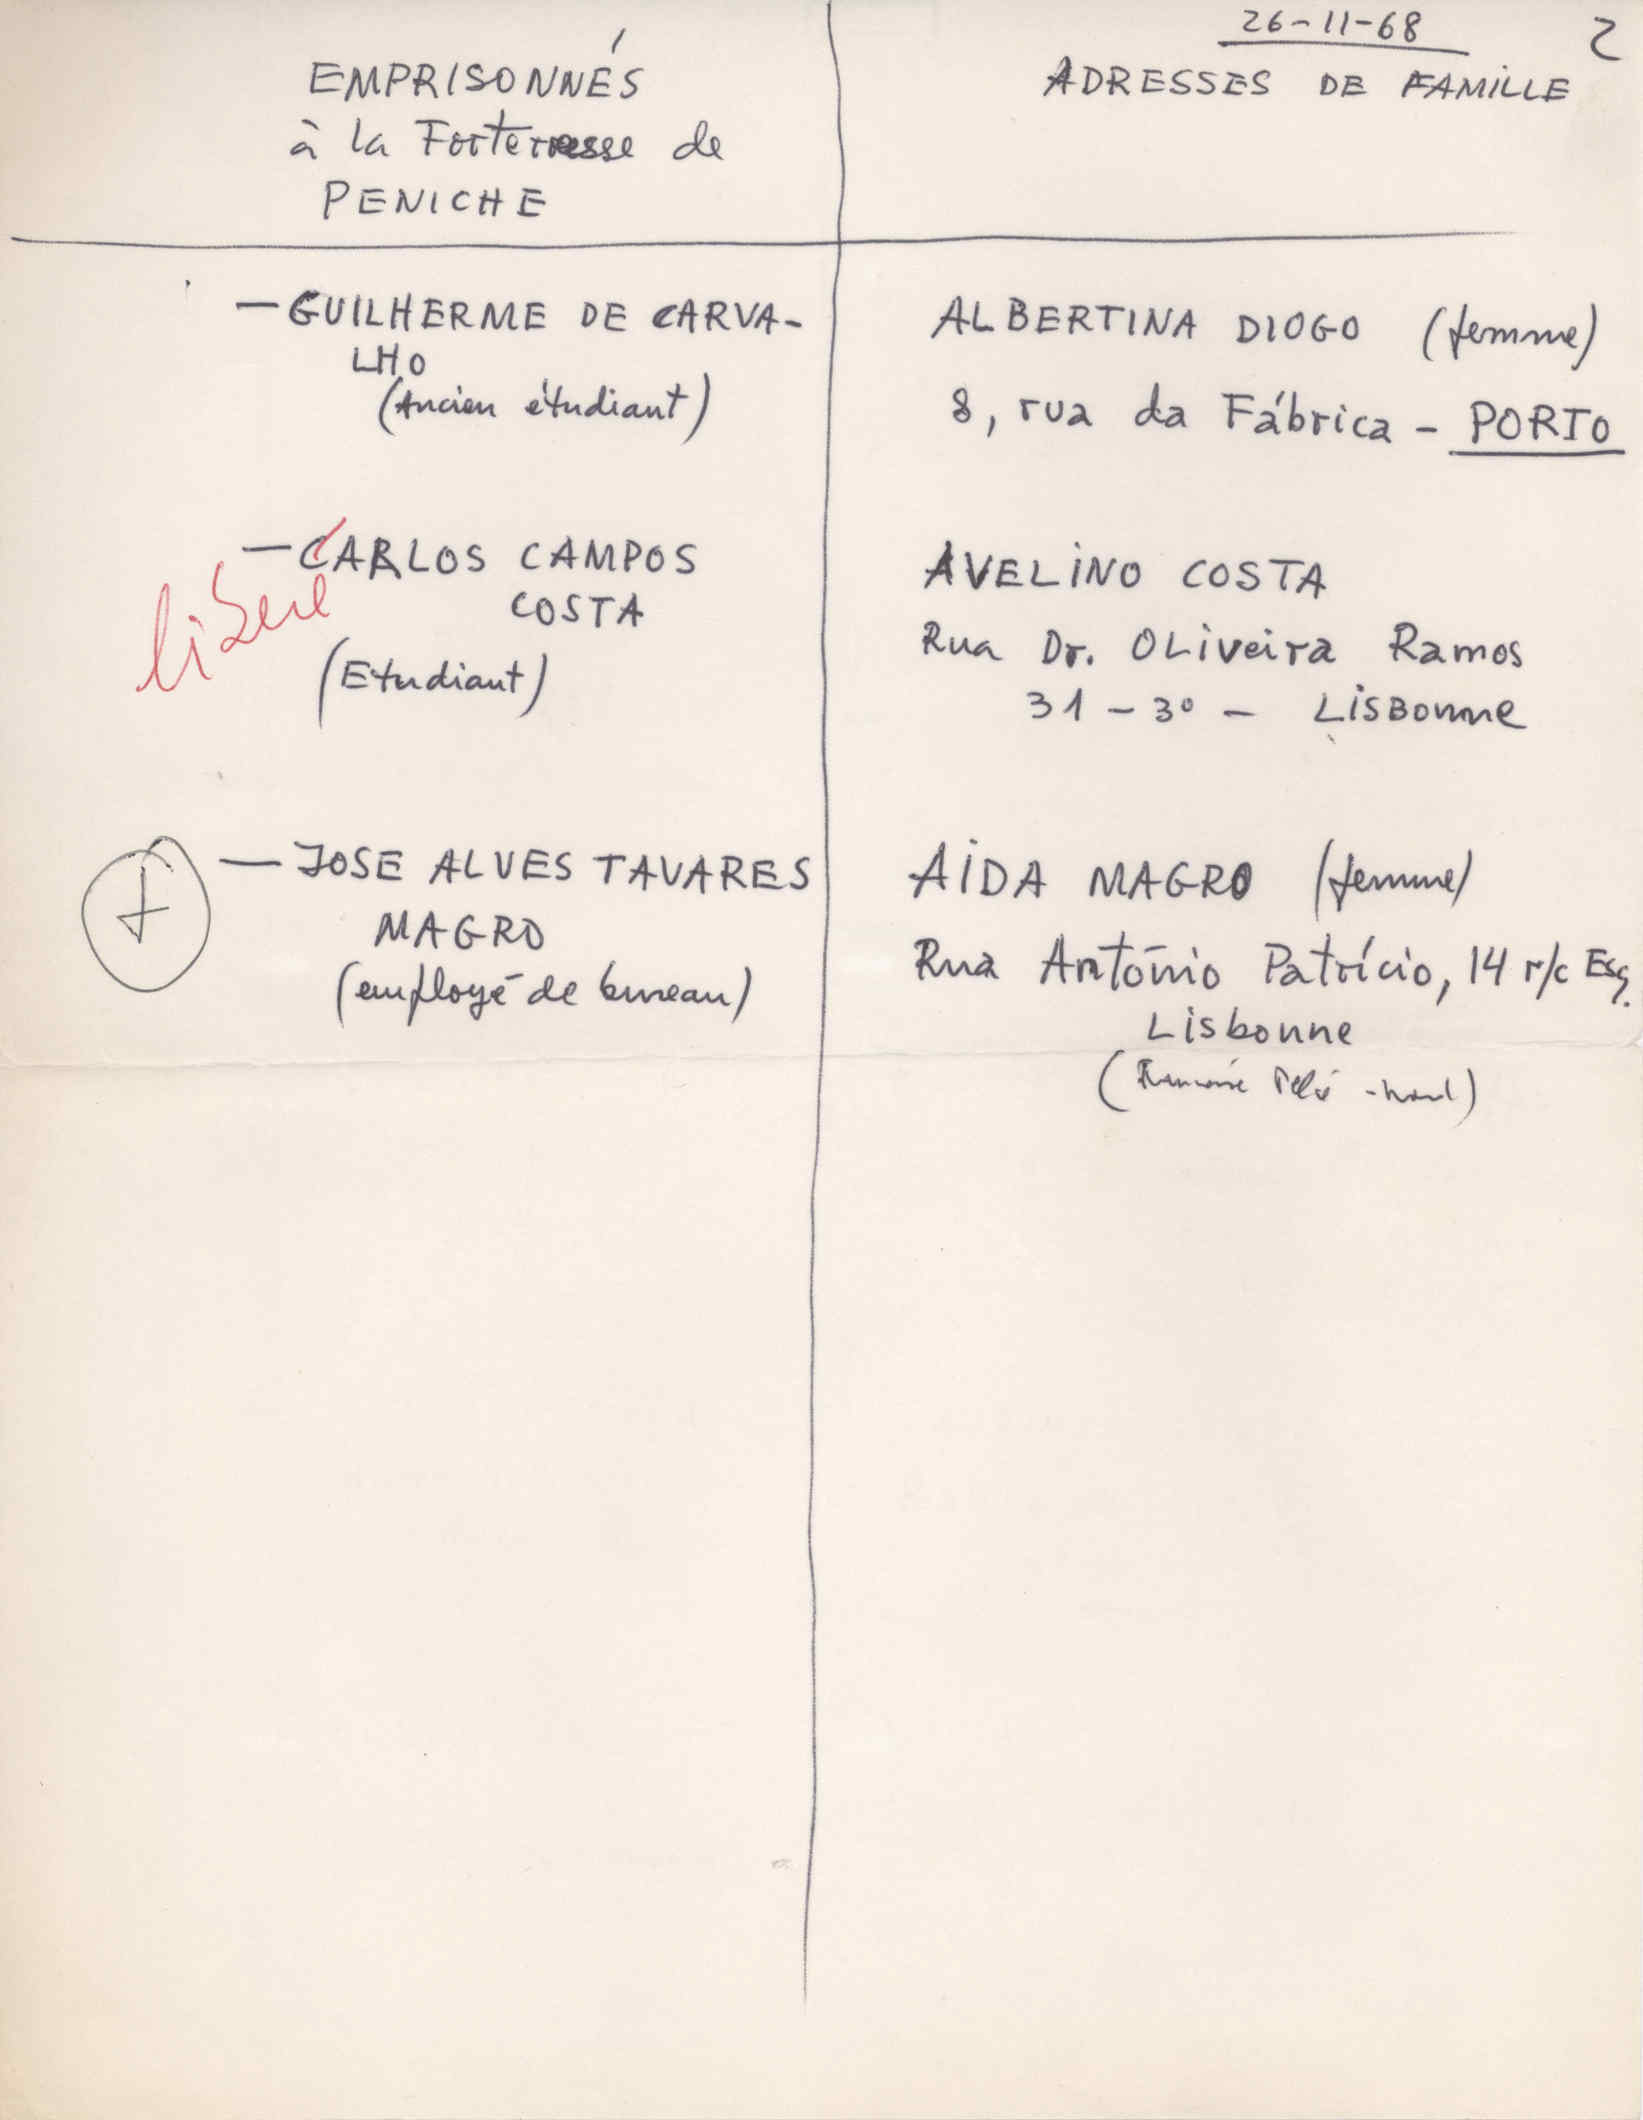 26-11-68
2
EMPRISONNÉS
à la Forteresse de
PENICHE
ADRESSES DE FAMILLE
— GUILHERME DE CARVA-
LHO
(Ancien étudiant)
ALBERTINA DIOGO (femme)
8, rua da Fábrica - PORTO
— CARLOS CAMPOS
COSTA
(Etudiant)
libéré
AVELINO COSTA
Rua Dr. OLiveira Ramos
31 - 3º - LISBONNE
— JOSE ALVES TAVARES
MAGRO
(employé de bureau)
AIDA MAGRO (femme)
Rua António Patrício, 14 r/c Esq.
Lisbonne